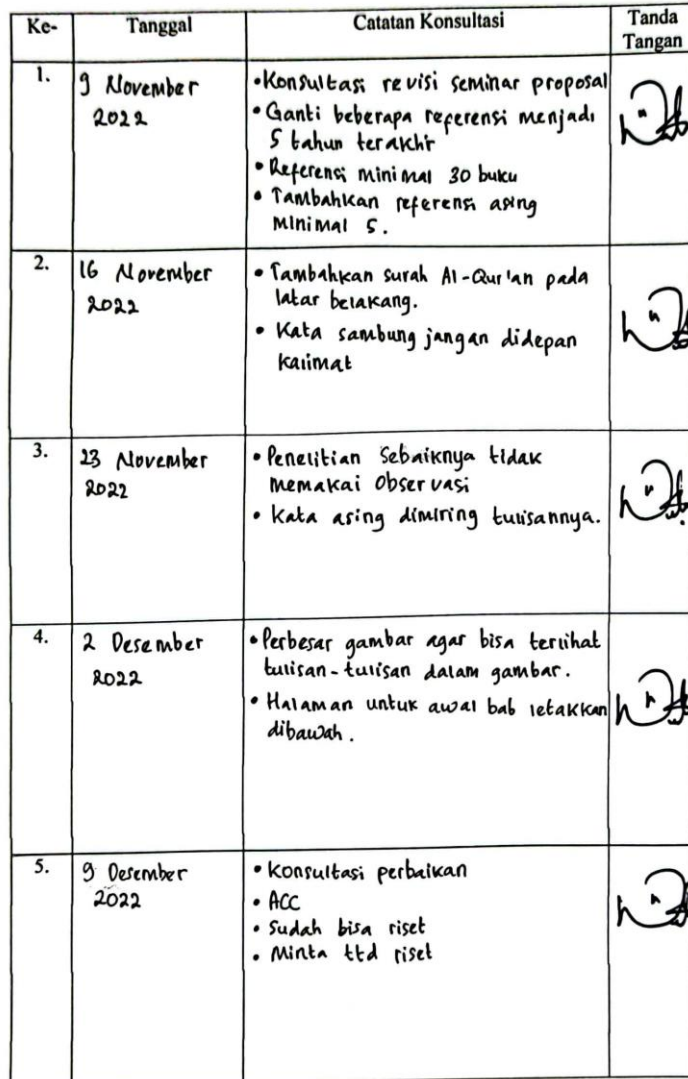 Ke- Tanggal Catatan Konsultasi Tanda
Tangan
1. 9 November
2022
•Konsultasi revisi seminar proposal
• Ganti beberapa referensi menjadi
5 tahun terakhir
• Referensi minimal 30 buku
• Tambahkan referensi asing
minimal 5.
2. 16 November
2022
• Tambahkan surah Al-Qur'an pada
latar belakang.
• Kata sambung jangan didepan
kalimat
3. 23 November
2022
• Penelitian sebaiknya tidak
memakai observasi
• Kata asing dimiring tulisannya.
4. 2 Desember
2022
• Perbesar gambar agar bisa terlihat
tulisan-tulisan dalam gambar.
• Halaman untuk awal bab letakkan
dibawah.
5. 9 Desember
2022
• Konsultasi perbaikan
• ACC
• Sudah bisa riset
• Minta ttd riset